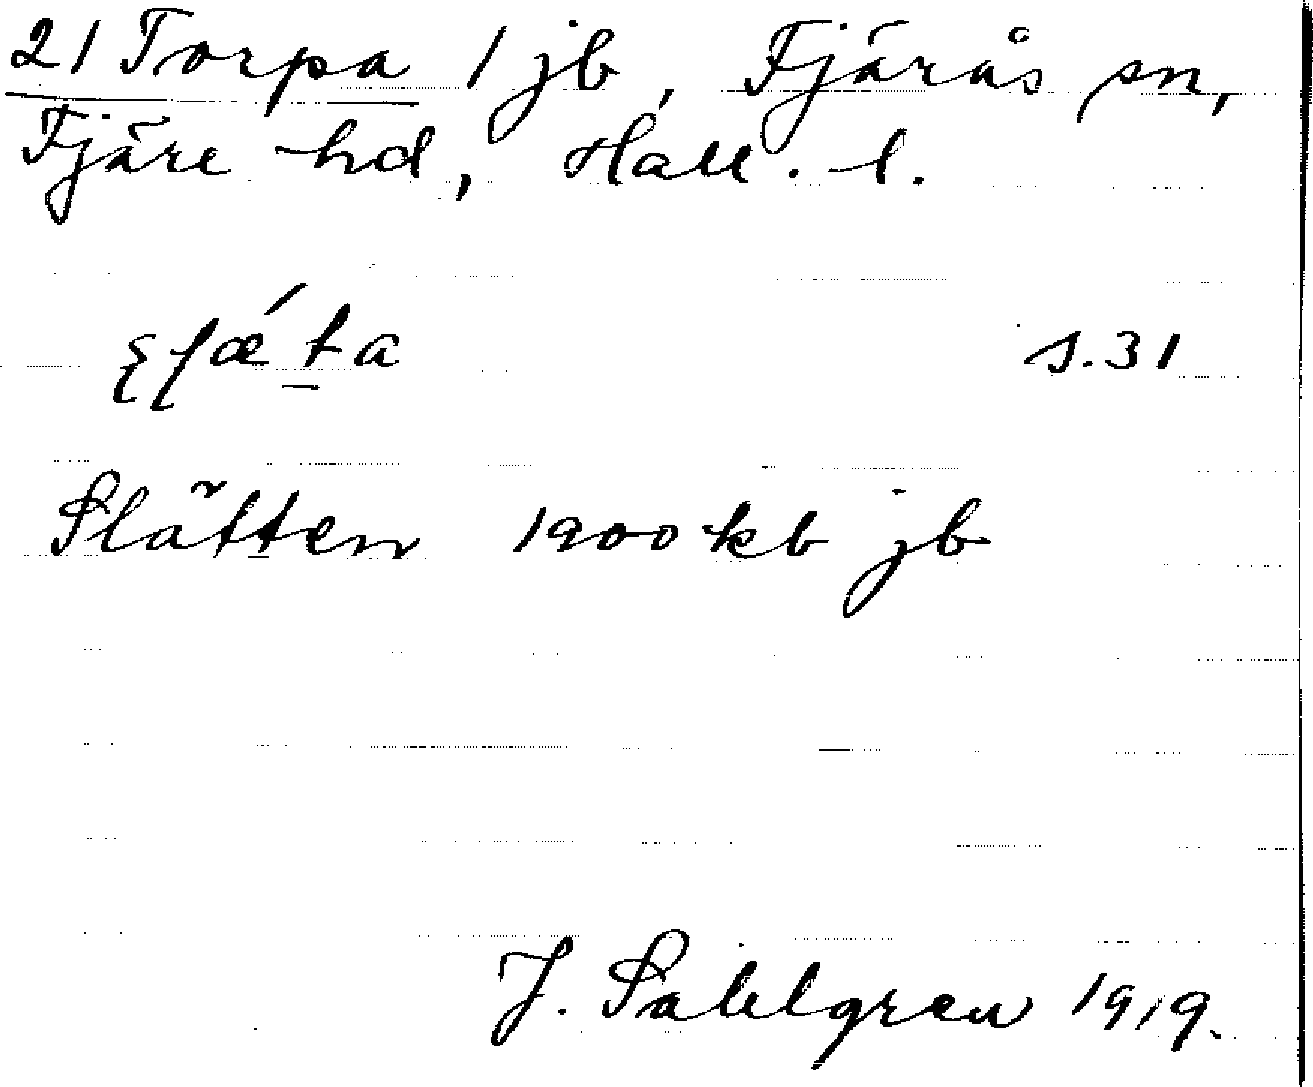 21 Torpa 1 jb, Fjärås sn,
Fjäre hd, Hall. l.
s. 31
Slätten 1900 kb jb
J. Sahlgren 1919.